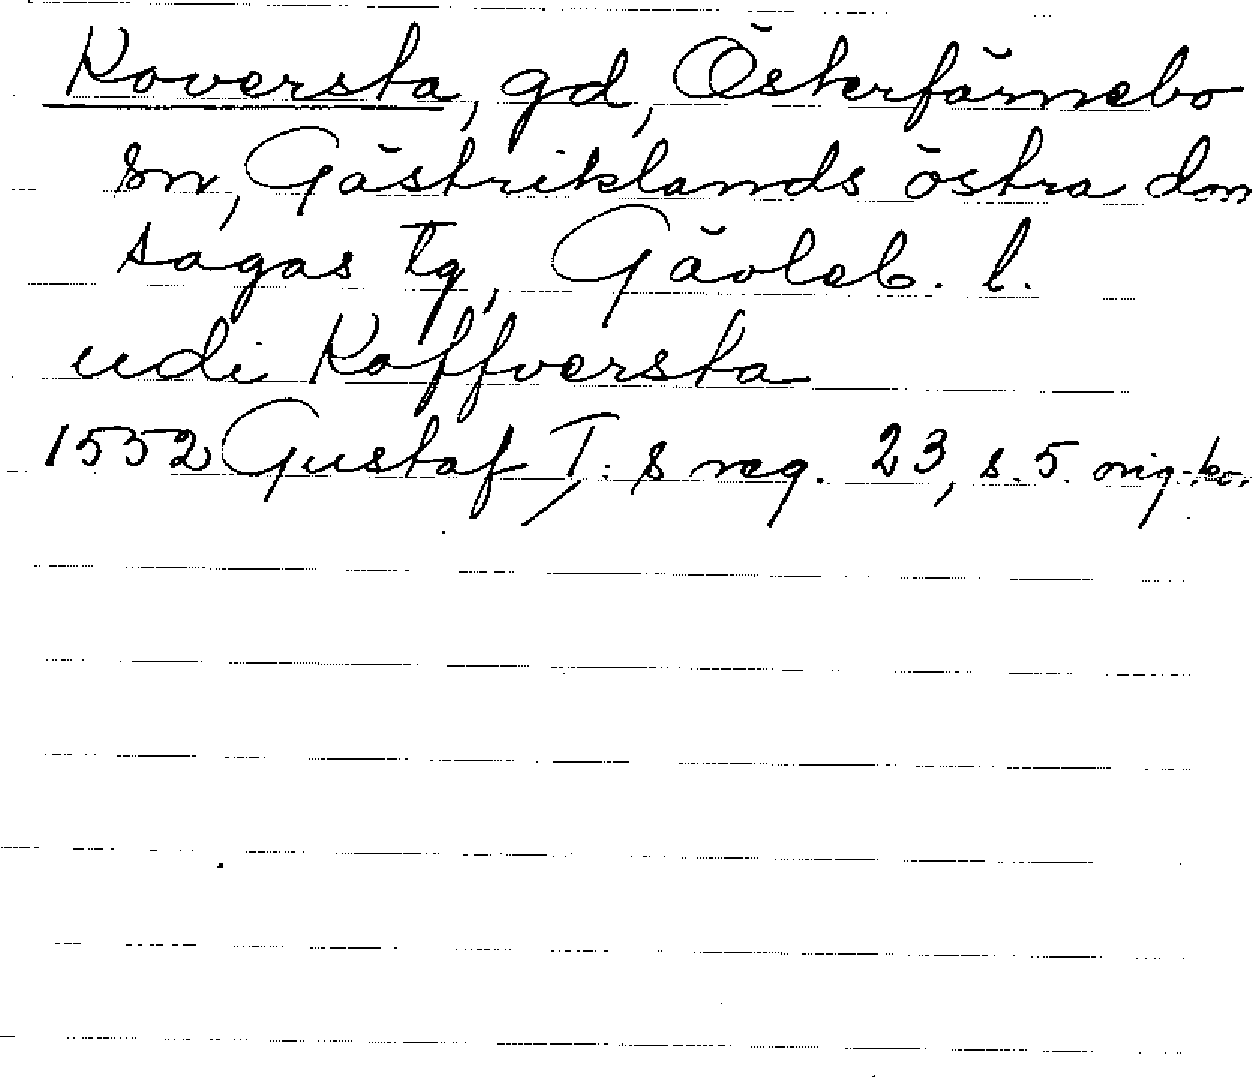 Koversta, gd, Österfärnebo
sn, Gästriklands östra dom
sagas tg, Gävleb. l.
udi Koffversta
1552 Gustaf I: s reg. 23, s. 5. orig.